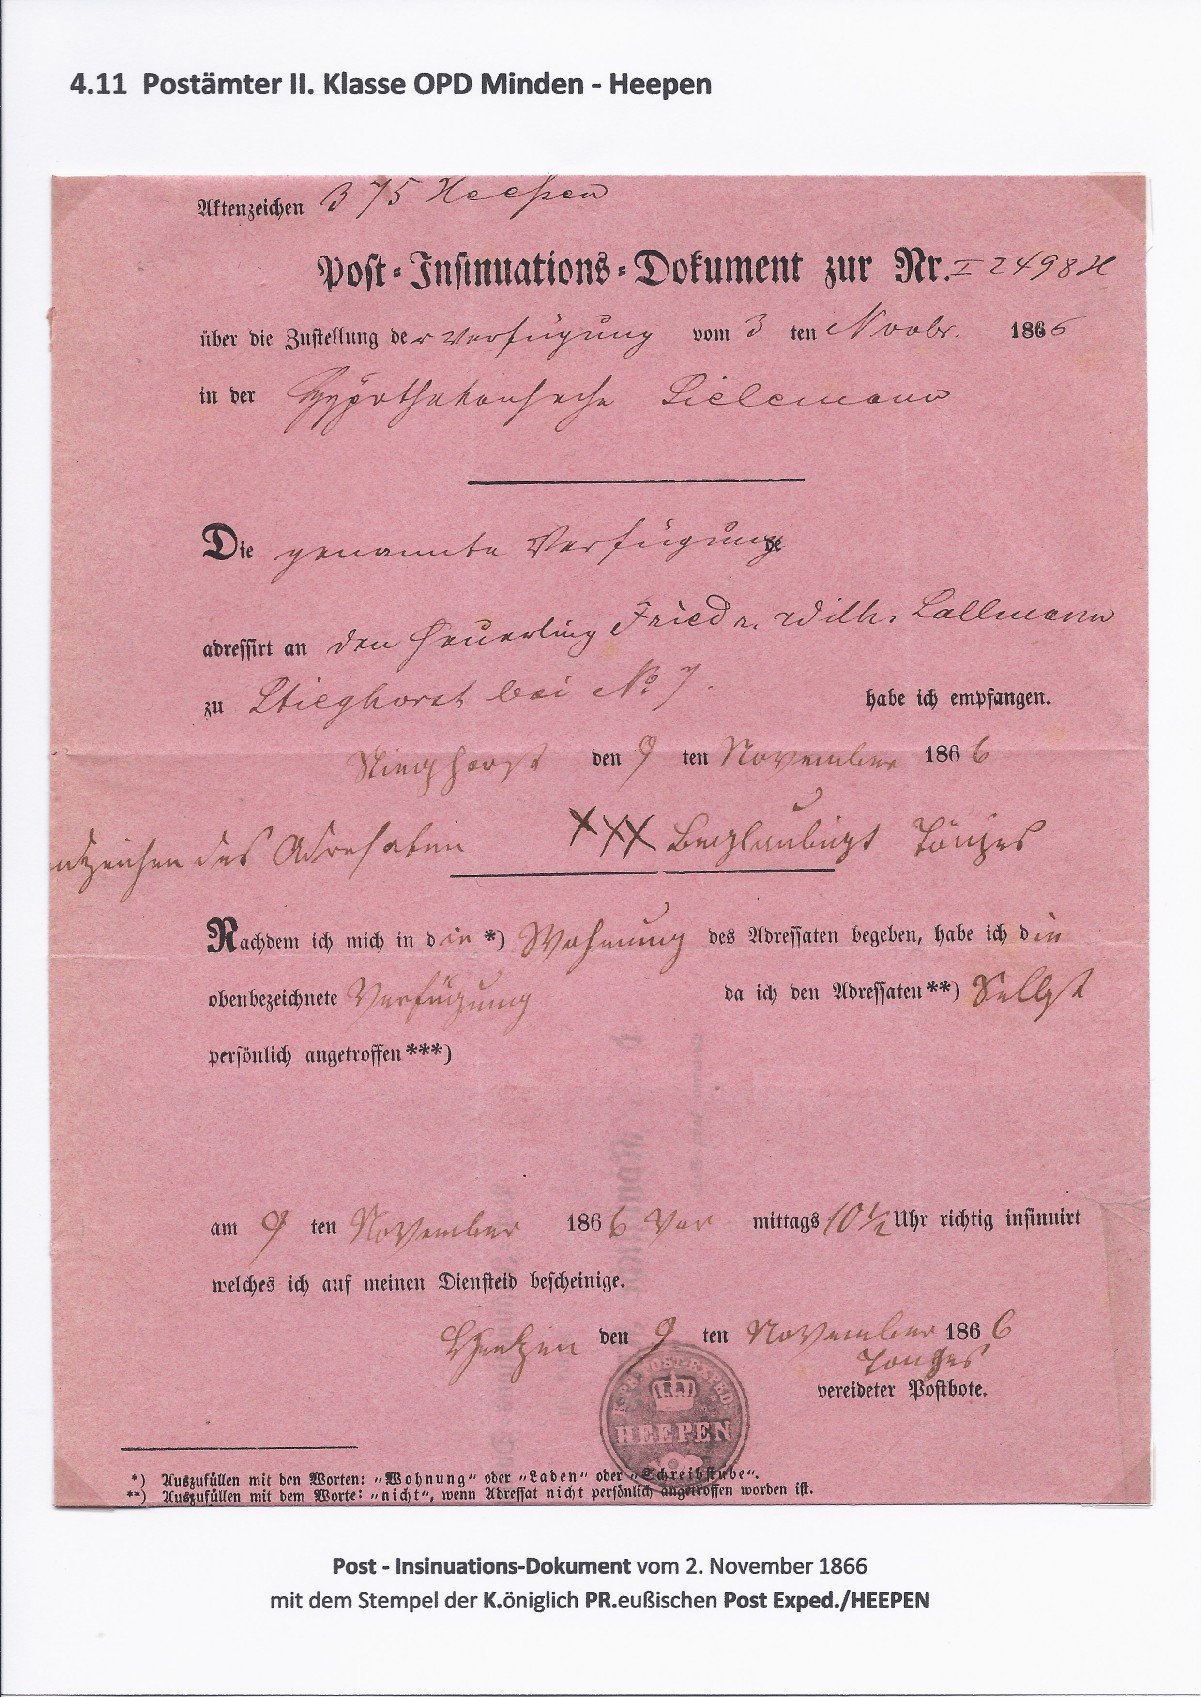 4.11 Postämter II. Klasse OPD Minden - Heepen
Aktenzeichen B 75 Heepen
Post-Insinuations-Dokument zur Nr. I 2498 H
über die Zustellung der Verfügung vom 3 ten Novbr. 1866
in der Hypothekensache Lielemann
Die genannte Verfügung de
adressirt an den Heuerling Friedr. Wilh. Lallmann
zu Stieghorst bei No 7. habe ich empfangen.
Stieghorst den 9 ten November 1866
ndzeichen des Adressaten XXX Beglaubigt Tönges
Nachdem ich mich in die *) Wohnung des Adressaten begeben, habe ich die
obenbezeichnete Verfügung da ich den Adressaten **) Selbst
persönlich angetroffen ***)
am 9 ten November 1866 Vor mittags 10 1/2 Uhr richtig insinuirt
welches ich auf meinen Diensteid bescheinige.
Heepen den 9 ten November 1866
Tönges
vereideter Postbote.
K. PR. POST-EXPED.
HEEPEN
*) Auszufüllen mit den Worten: „Wohnung" oder „Laden" oder „Schreibstube".
**) Auszufüllen mit dem Worte: „nicht", wenn Adressat nicht persönlich angetroffen worden ist.
Post - Insinuations-Dokument vom 2. November 1866
mit dem Stempel der K.öniglich PR.eußischen Post Exped./HEEPEN